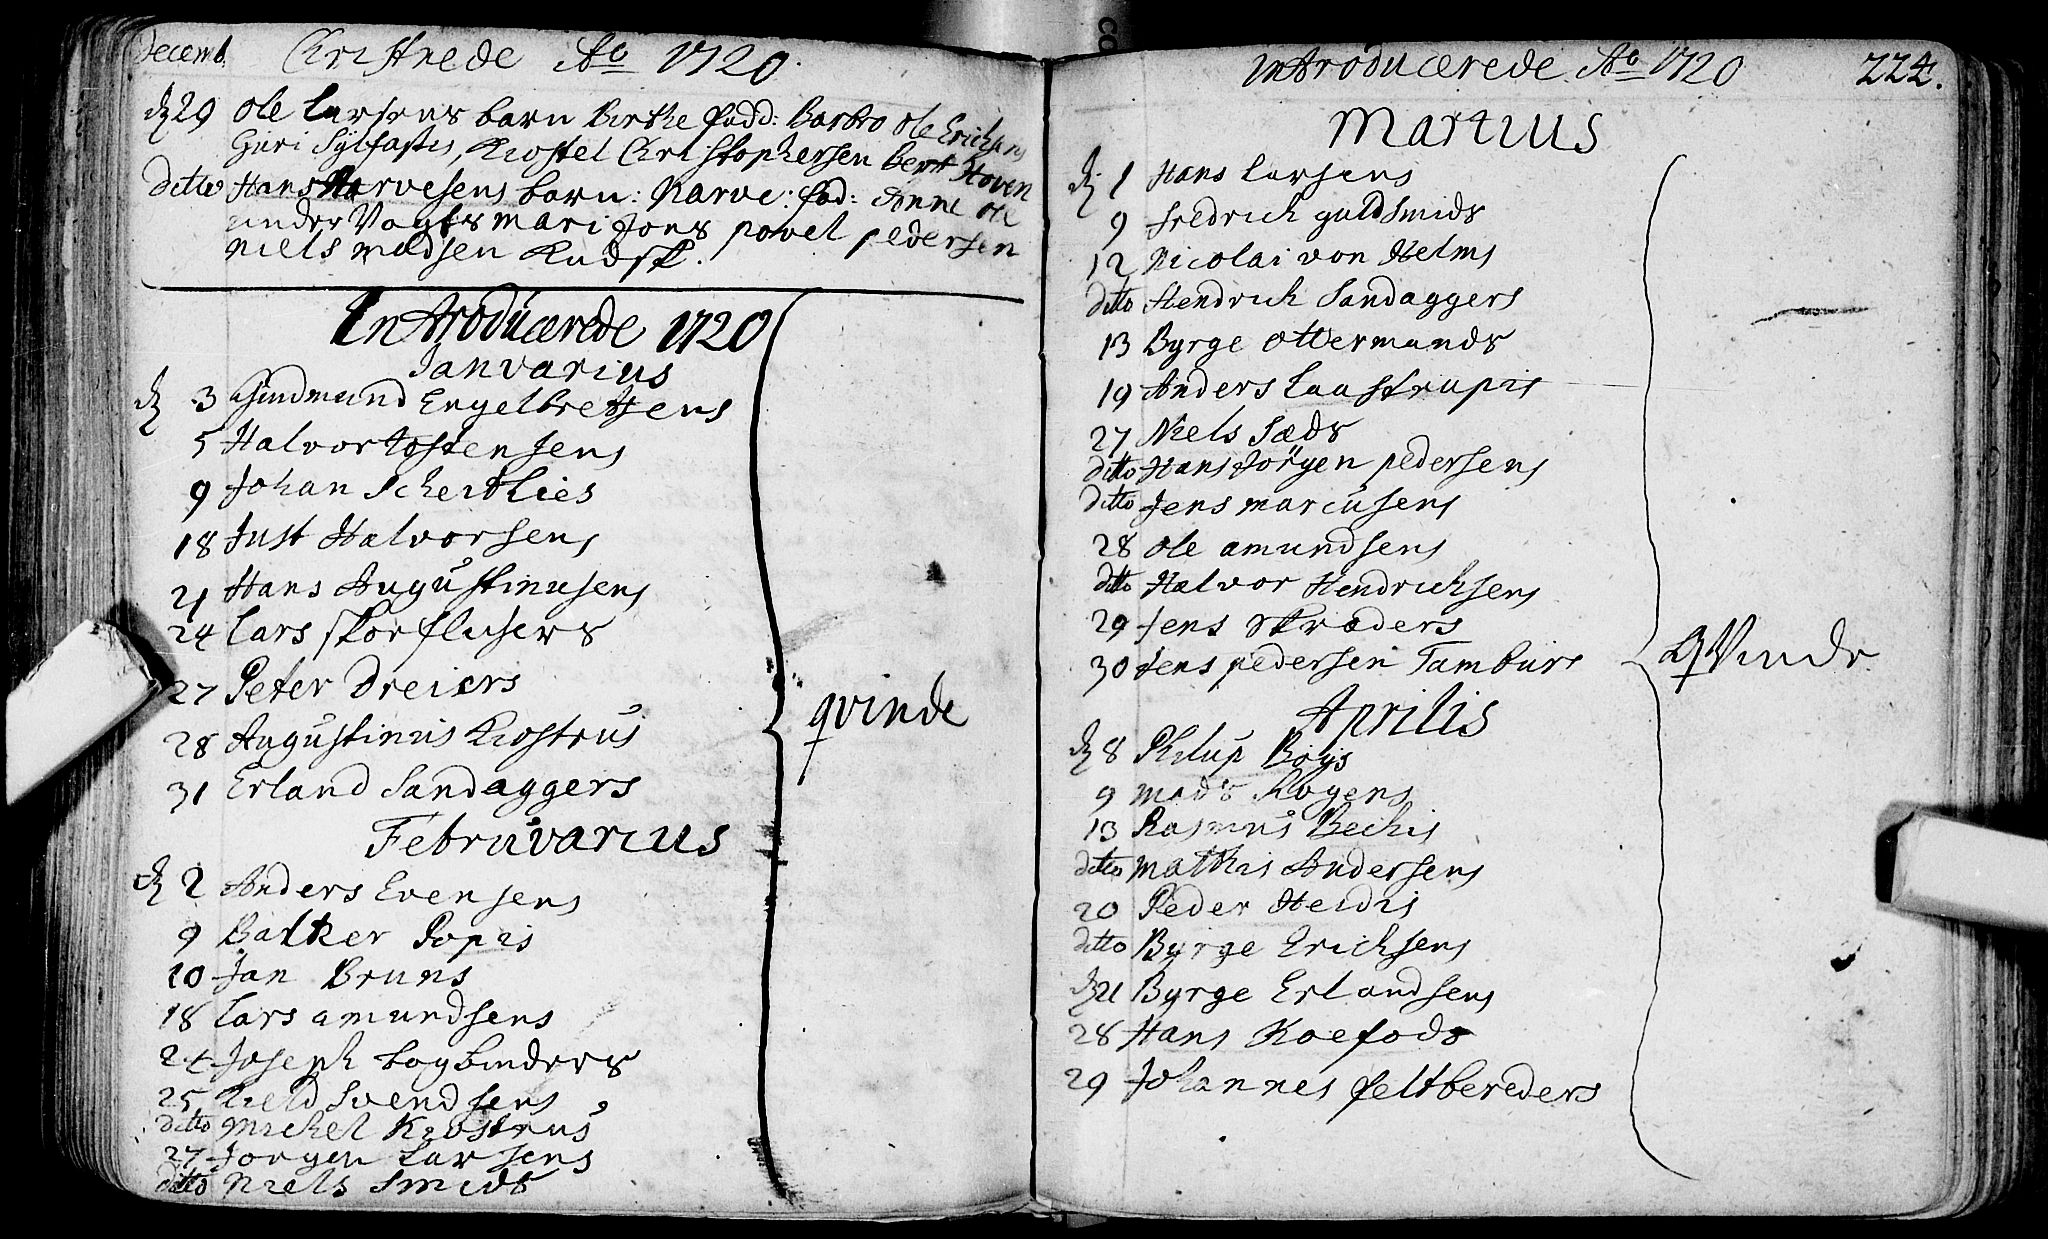 Decemb. Christnede Ao 1720.
d 29 Ole Larsens barn Birthe fadd: Barbro Ole Erichsens
Guri Sylfastis, Kiostel Christophersen bert Hoven
ditto Hans Narvesens barn: Narve: fad: Anne Ole
under Vogts Mari Jons povel pedersen
niels madsen Kudsk.
Introducerede 1720
Ianvarius
d 3 Gudmund Engelbretsens
5 Halvor tostensens
9 Johan Schertlies
18 Just Halvorsens
21 Hans Augustinusens
24 Lars skorflusers
27 Peter Dreiers
28 Augustinus Kiostrus
31 Erland Sandaggers
qvinde
Februvarius
d 2 Anders Evensens
9 Balker Popis
10 Jan Bruns
18 Lars amundsens
24 Joseph bogbinders
25 Kield Svendsens
ditto Michel Kiostrus
27 Jorgen Larsens
ditto Niels Smids
Introducerede Ao 1720 224.
Martius
d 1 Hans Larsens
9 fredrich guldsmids
12 Nicolai von Helms
ditto Hendrich Sandaggers
13 Byrge Ottermands
19 Anders Laastrupis
27 Niels Sæds
ditto Hans Jörgen pedersens
ditto Jens marcusens
28 Ole amundsens
ditto Halvor Hendrichsens
29 Jens Skræders
30 Jens pedersen Tamburs
qVinde
Aprilis
d 8 Philup Böys
9 mads Kogens
13 Rasmus Bechis
ditto mathis Andersens
20 Peder Heidis
ditto Byrge Erichsens
d 21 Byrge Erlandsens
28 Hans Koefods
29 Johannes feltbereders